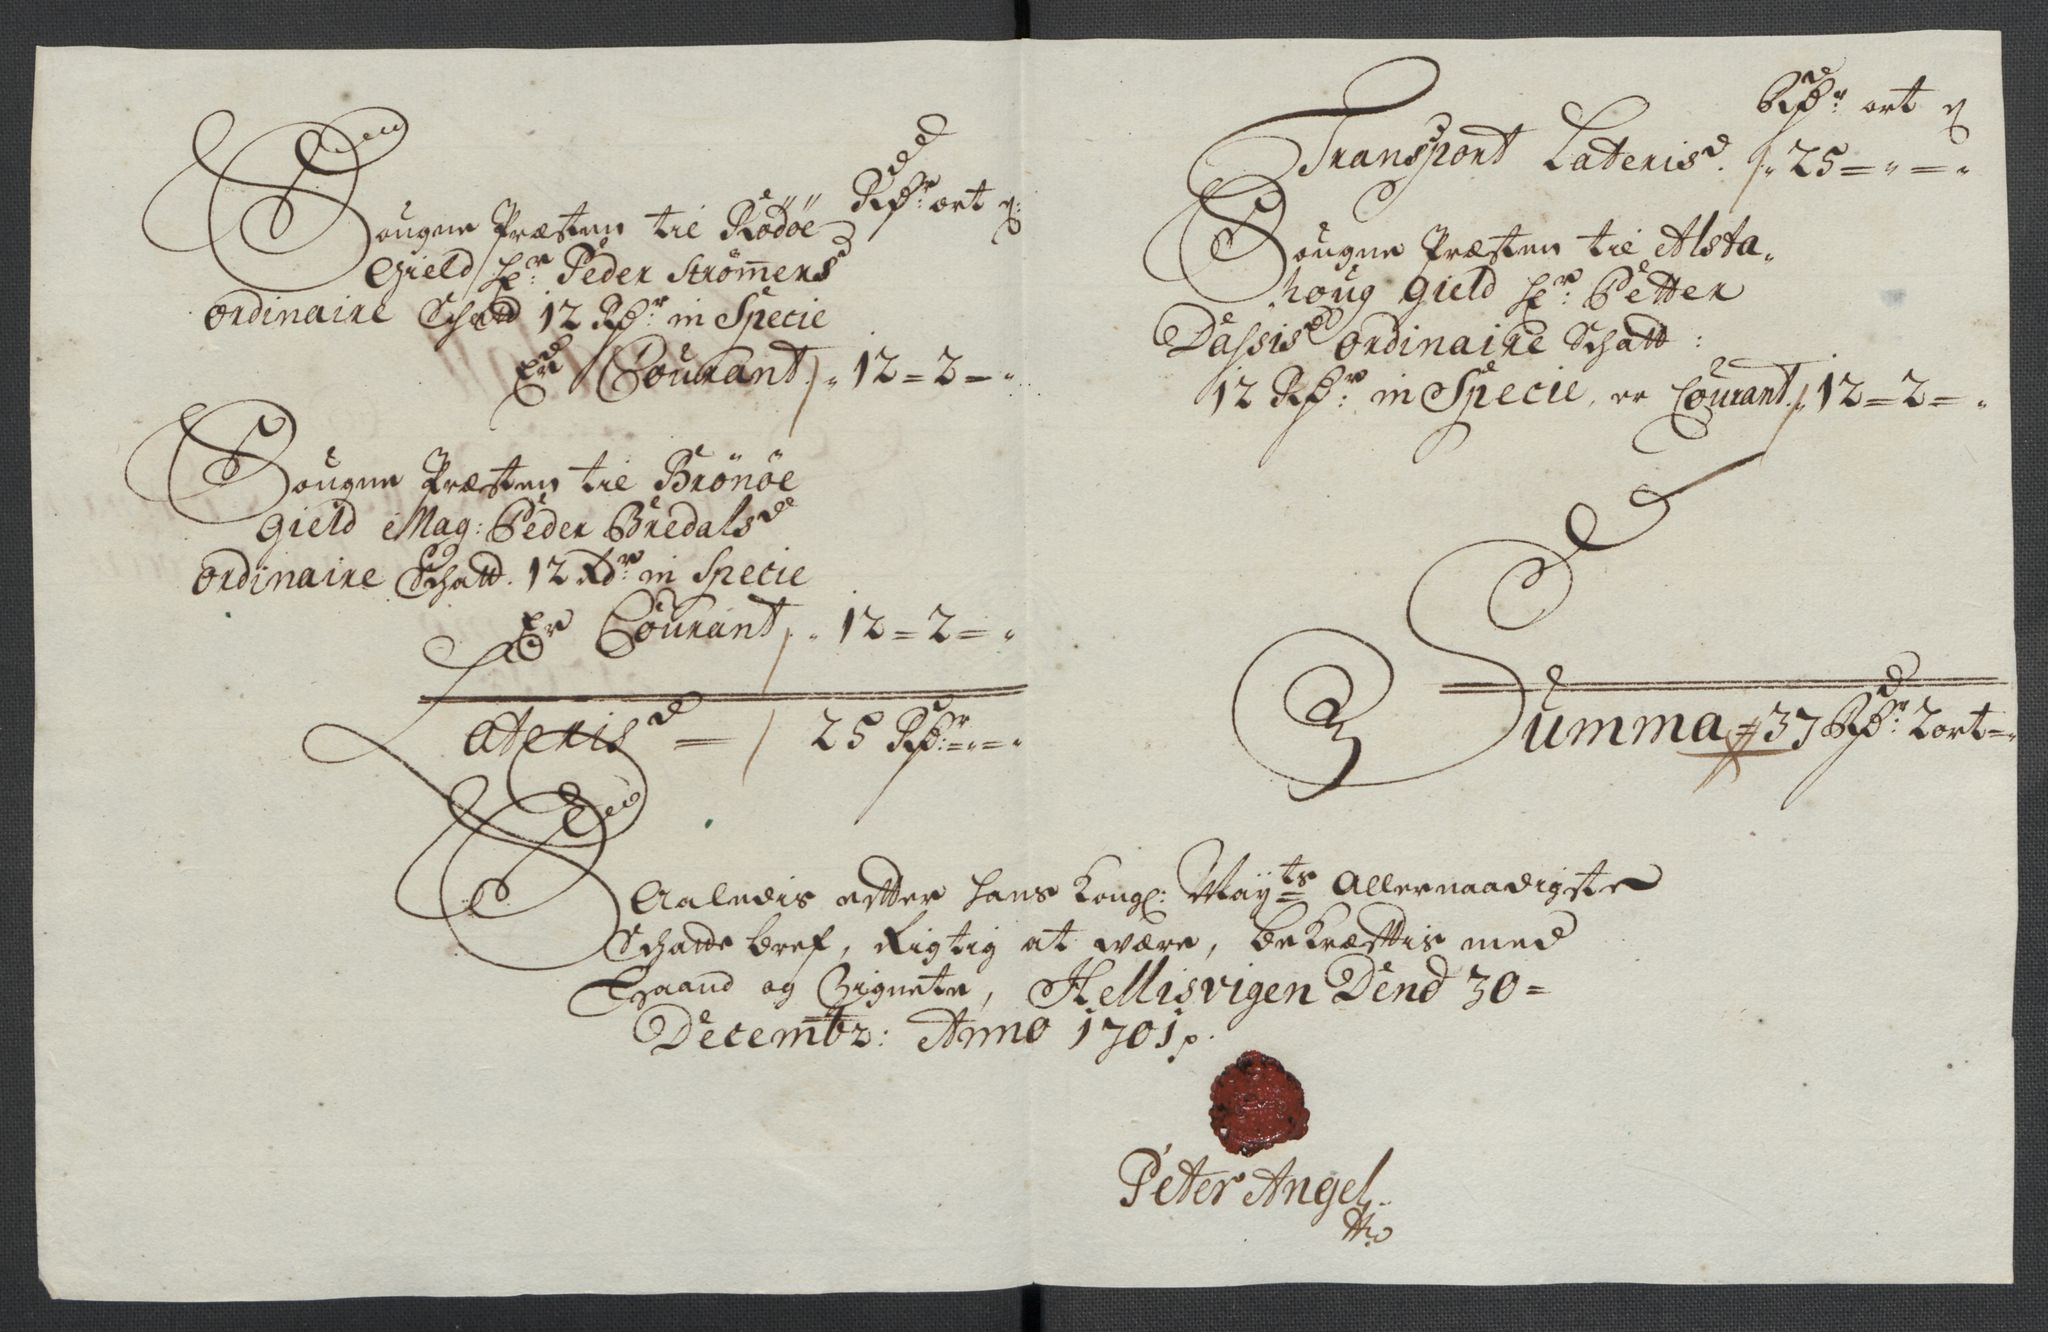 Rdr ort ß:
Sougne Præsten til Rödöe
Gield Hr: Peder Strömers
ordinaire Schatt 12 Rdr: in Specie
Er Courant 12 = 2 =
Sougne Præsten til Brönöe
Gield Mag: Peder Bredals
ordinaire Schatt. 12 Rdr: in Specie
Er Courant 12 = 2 =
Lateris = 25 Rdr: = =
Rdr: ort ß
Transport Lateris 25 = =
Sougne Præsten til Alsta,
houg gield Hr: Petter
Dassis ordinaire Schatt:
12 Rdr: in Specie, er Courant 12 = 2 =
Summa 37 Rdr: 2 ort =
Saaledis efter Hans Kongl: Mayts Allernaadigste
Schatte bref, Rigtig at være, bekræftis med
Haand og Zignete, Hellisvigen Dend 30 =
Decembr: Anno 1701.
Peter Angel